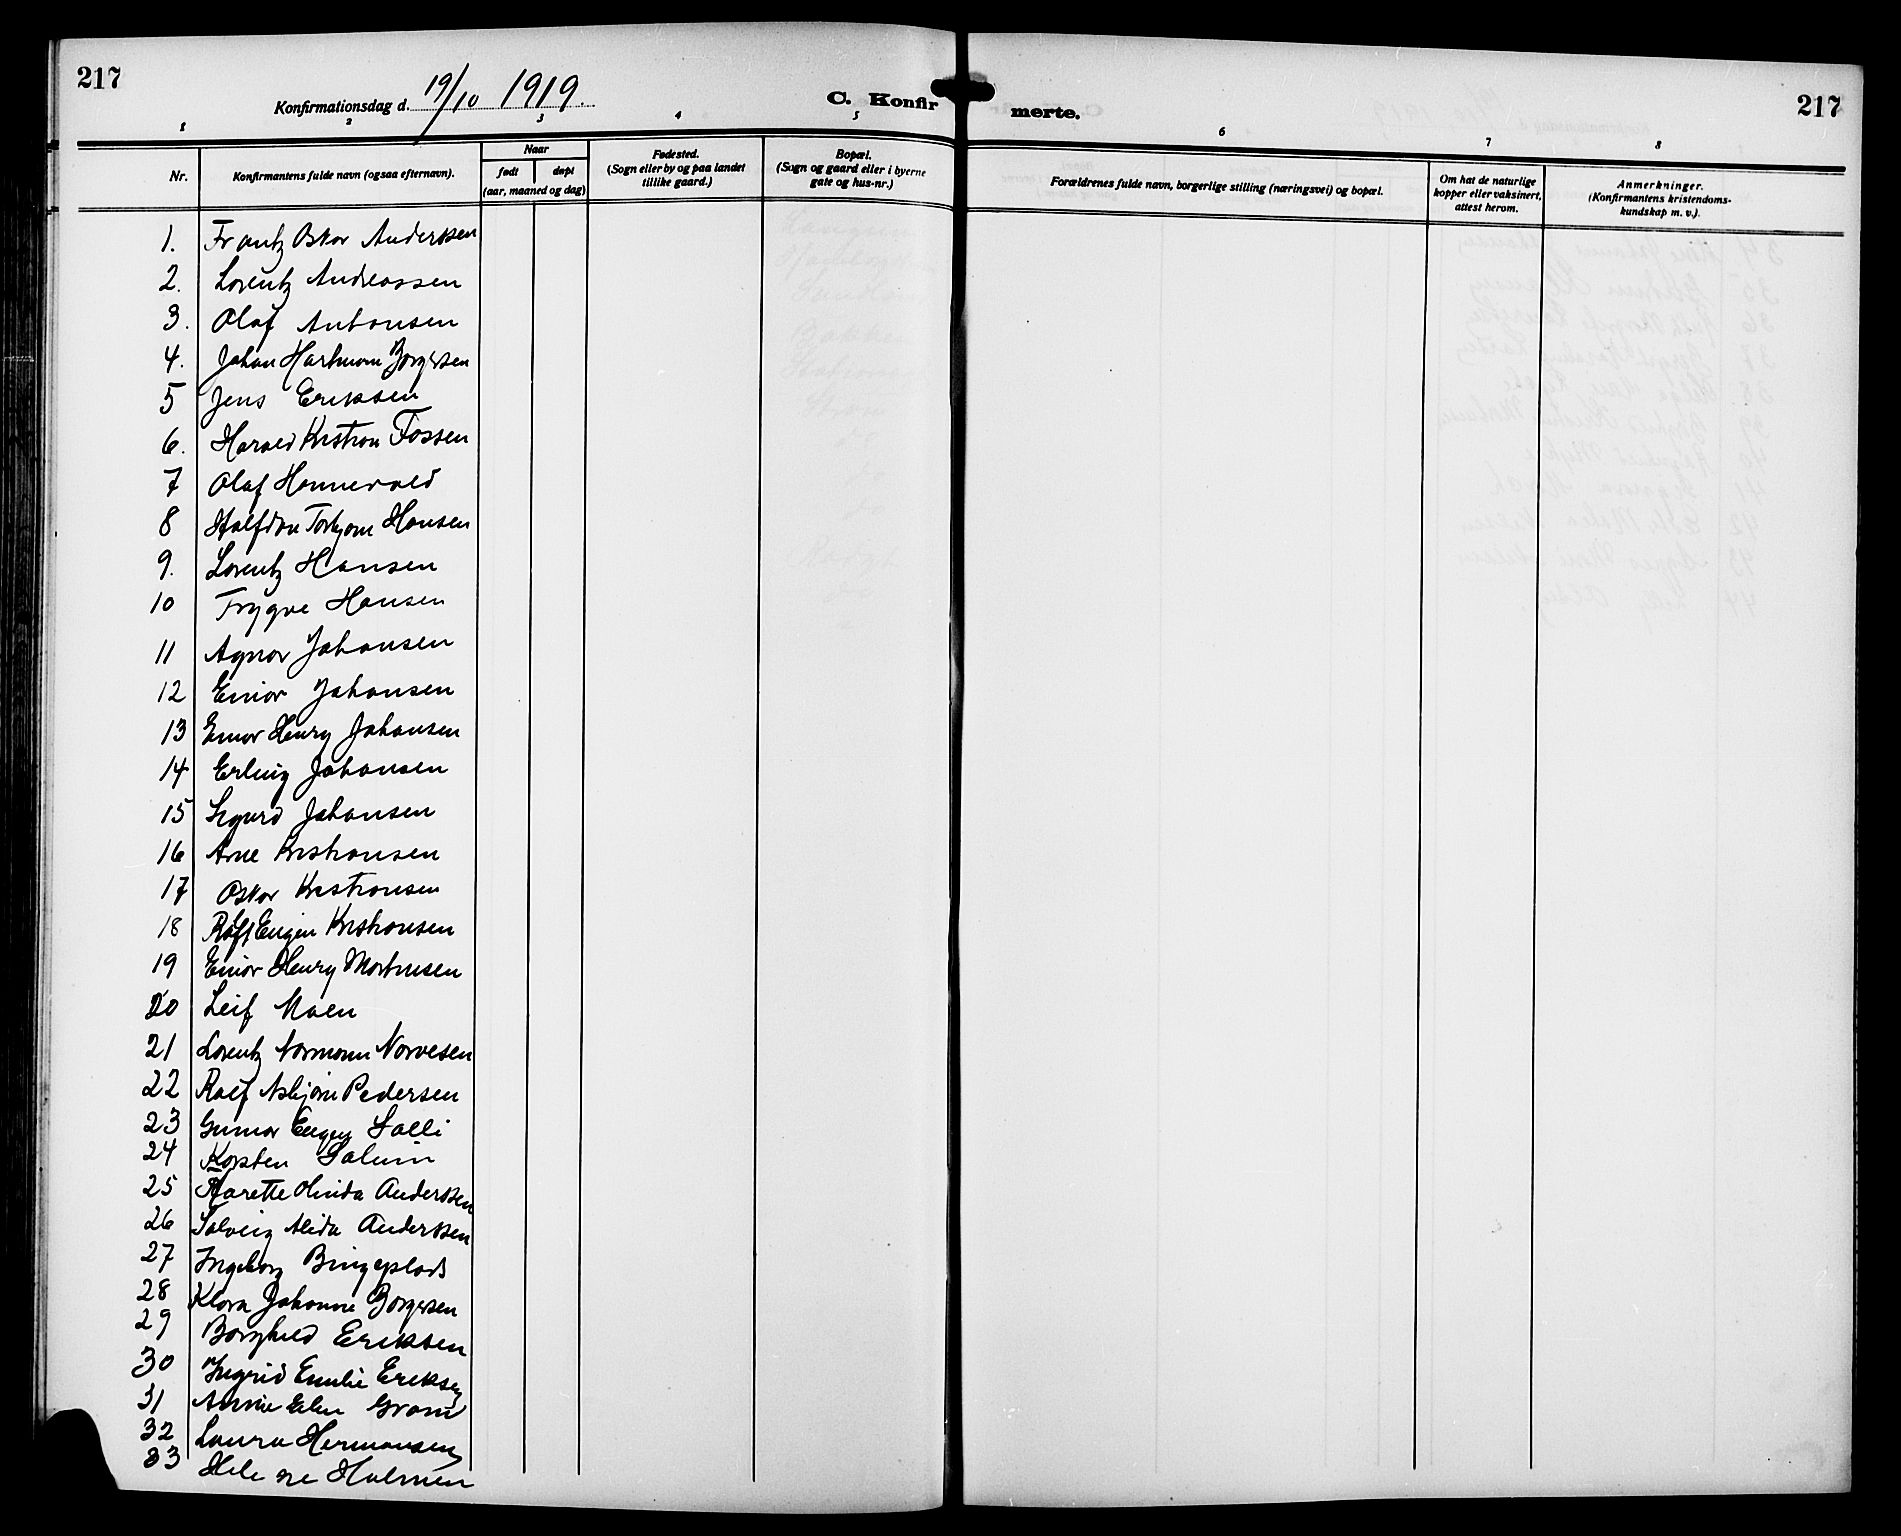 217
Konfirmationsdag d. 19/10 1919.
C. Konfir
merte.
217
1 2 3 4 5 6 7 8
Nr.
Konfirmantens fulde navn (ogsaa efternavn).
Naar
født
døpt
(aar, maaned og dag)
Fødested.
(Sogn eller by og paa landet
tillike gaard.)
Bopæl.
(Sogn og gaard eller i byerne
gate og hus-nr.)
Forældrenes fulde navn, borgerlige stilling (næringsvei) og bopæl.
Om hat de naturlige
kopper eller vaksinert,
attest herom.
Anmerkninger.
(Konfirmantens kristendoms-
kundskap m. v.).
1. Frantz Oskar Anderssen
2. Lorentz Andreassen
3. Olaf Antonsen
4. Johan Hartmann Borgersen
5 Jens Eriksen
6. Harald Kristian Fossen
7 Olaf Hannevold
8 Halfdan Torbjørn Hansen
9. Lorentz Hansen
10 Trygve Hansen
11 Agnar Johansen
12 Einar Johansen
13 Einar Henry Johansen
14 Erling Johansen
15 Sigurd Johansen
16 Arne Kristiansen
17 Oskar Kristiansen
18 Rolf Eugen Kristiansen
19 Einar Henry Martinsen
20 Leif Moen
21 Lorentz Normann Norvesen
22 Rolf Asbjørn Pedersen
23 Gunnar Eugen Solli
24 Korsten Solum
25 Marette Olinda Anderssen
26 Solveig Alida Anderssen
27 Ingeborg Bingeplads
28 Klara Johanne Borgersen
29 Borghild Eriksen
30 Ingrid Emilie Eriksen
31 Annie Elen Gram
32 Laura Hermansen
33 Helene Holmen